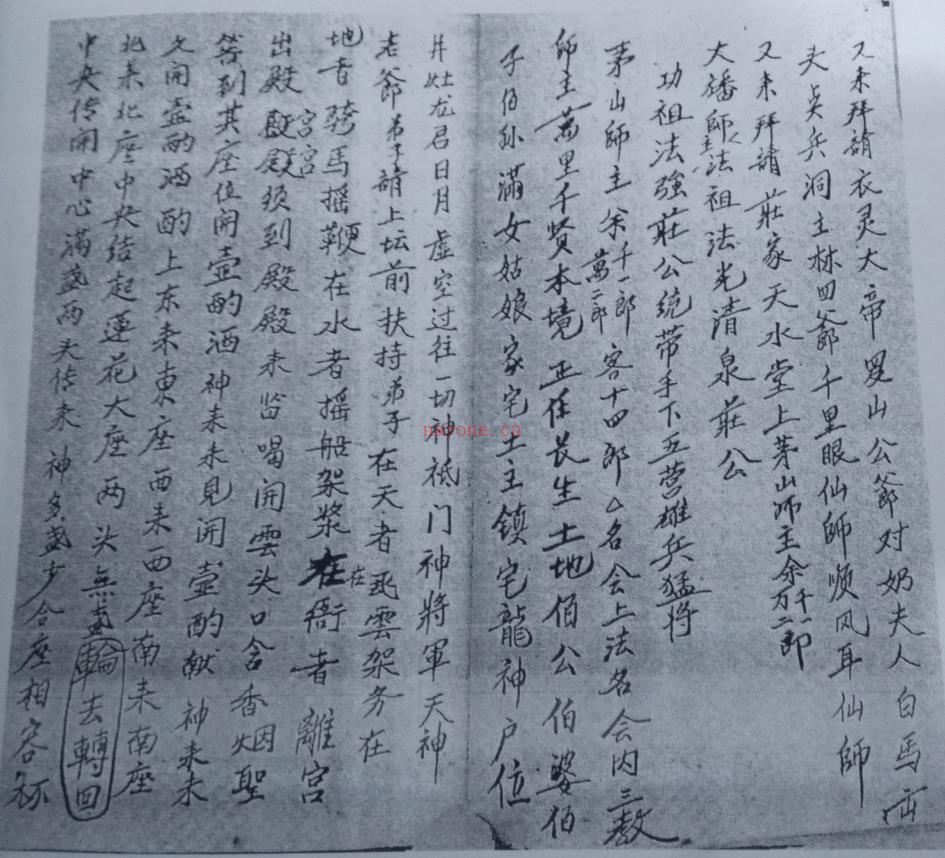 又来拜請衣灵大帝罗山公爺对奶夫人白馬
夫貞兵洞主林四爺千里眼仙師順风耳仙師
又来拜請莊家天水堂上茅山师主余千一郎万二郎
大潘師主法祖法光清泉莊公
功祖法強莊公统带手下五营雄兵猛将
茅山師主余千一郎萬二郎客十四郎么名会上法名会内三教
師主萬里千贤本境正任长生土地伯公伯婆伯
子伯孙滿女姑娘家宅土主鎮宅龍神户位
井灶龙君日月虚空过往一切神祇门神將軍天神
老爺弟子請上坛前扶持弟子在天者飛雲架务在
地者骑馬摇鞭在水者摇船架漿在衙者離宫
出殿宫宫殿殿须到殿殿来监喝開雲头口含香烟聖
答到其座位開壺酌酒神来未見開壺酌献神来未
又開壺酌酒酌上东来東座西来西座南来南座
北来北座中央结起蓮花大座两头無盞輪去轉回
中央传開中心滿盞两头传来神多盞少合座相容杯
nayona.cn